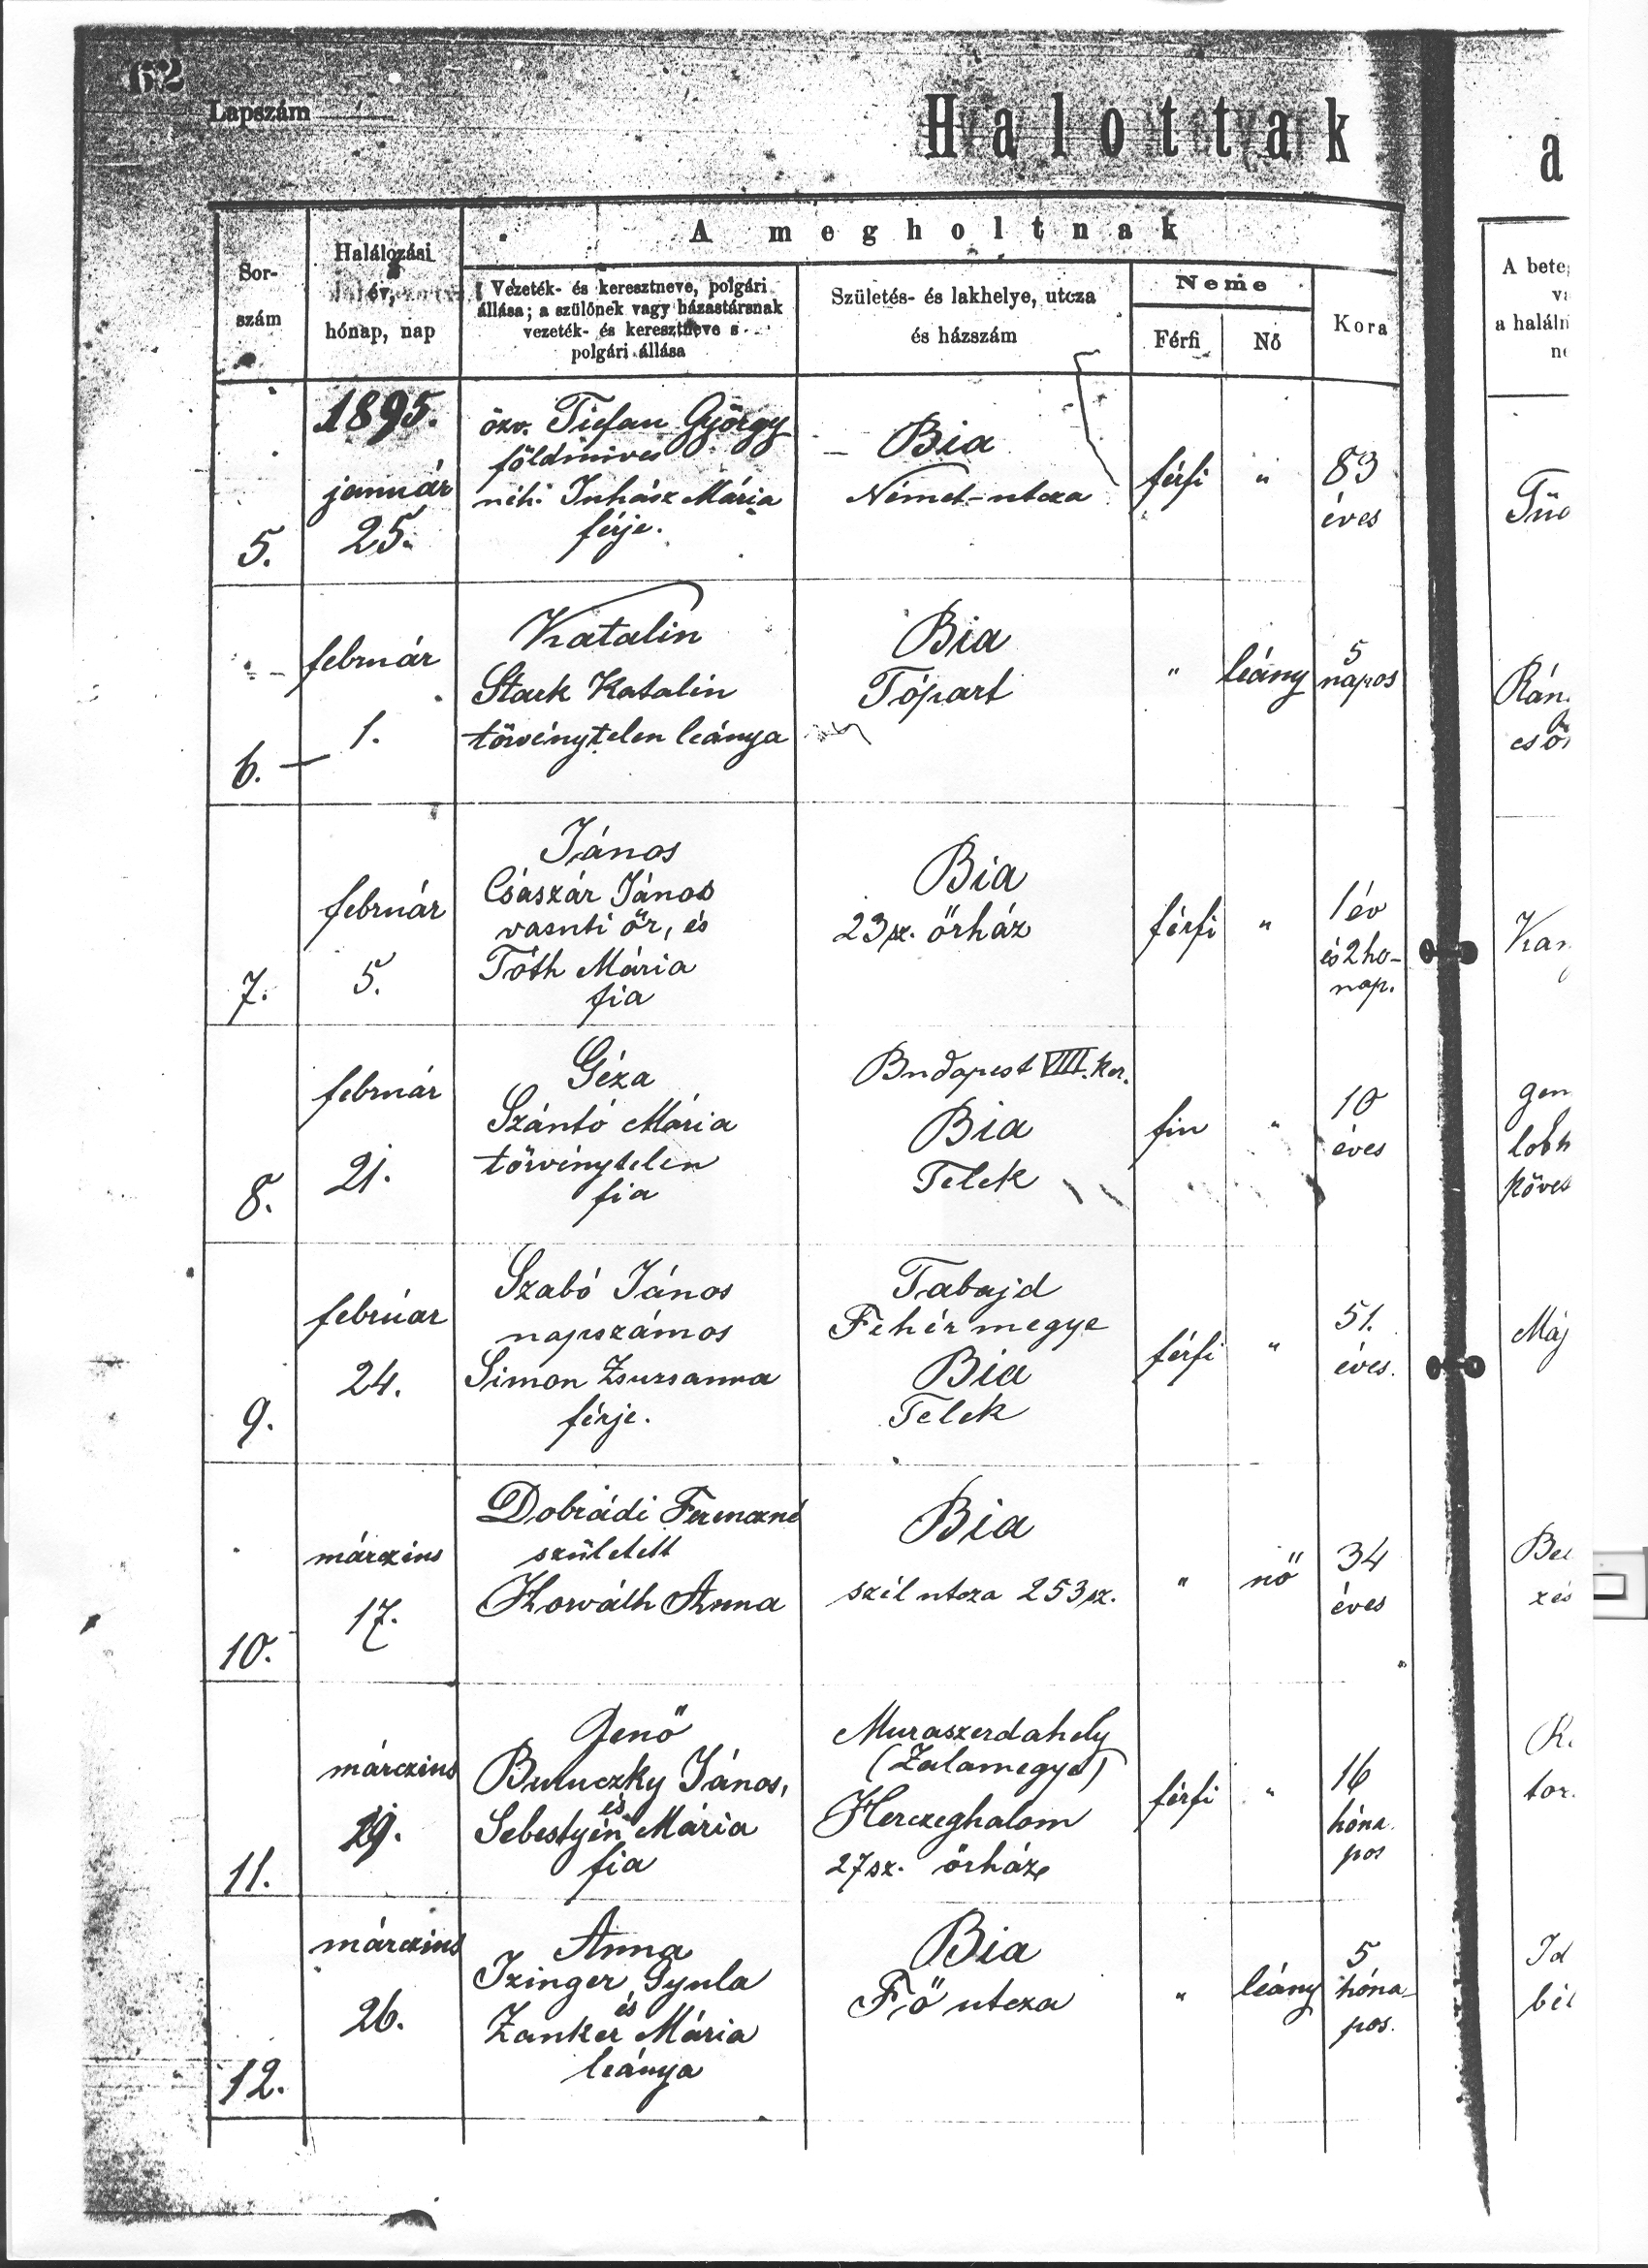 62
Lapszám
Halottyak
a
A megholtnak
Sor-
szám
Halálozási
év,
hónap, nap
Vezeték- és keresztneve, polgári
állása; a szülőnek vagy házastársnak
vezeték- és keresztneve s
polgári állása
Születés- és lakhelye, utcza
és házszám
Neme
Férfi
Nő
Kora
A bete
a haláln
5.
1895.
január
25.
özv. Tiefan György
földmives
néh. Juhász Mária
férje.
Bia
Német-utcza
férfi
"
83
éves
6.
február
1.
Katalin
Stark Katalin
törvénytelen leánya
Bia
Tópart
"
leány
5
napos
Rán
csö
7.
február
5.
János
Császár János
vasuti őr, és
Tóth Mária
fia
Bia
23 sz. őrház
férfi
"
1 év
és 2 hó-
nap.
8.
február
21.
Géza
Szántó Mária
törvénytelen
fia
Budapest VIII. ker.
Bia
Telek
fiu
"
10
éves
gen
lobh
köves
9.
február
24.
Szabó János
napszámos
Simon Zsuzsanna
férje.
Tabajd
Fehérmegye
Bia
Telek
férfi
"
51.
éves.
Máj
10.
márczius
17.
Dobrádi Ferenczné
született
Horváth Anna
Bia
szél utcza 253 sz.
"
nő
34
éves
11.
márczius
Jenő
János,
és
Sebestyén Mária
fia
Muraszerdahely
(Zalamegye)
Herczeghalom
27 sz. őrház
férfi
"
16
hóna
pos
tor.
12.
márczius
26.
Anna
Izinger Gyula
és
Zanker Mária
leánya
Bia
Fő utcza
"
leány
5
hóna-
pos.
Id
bél